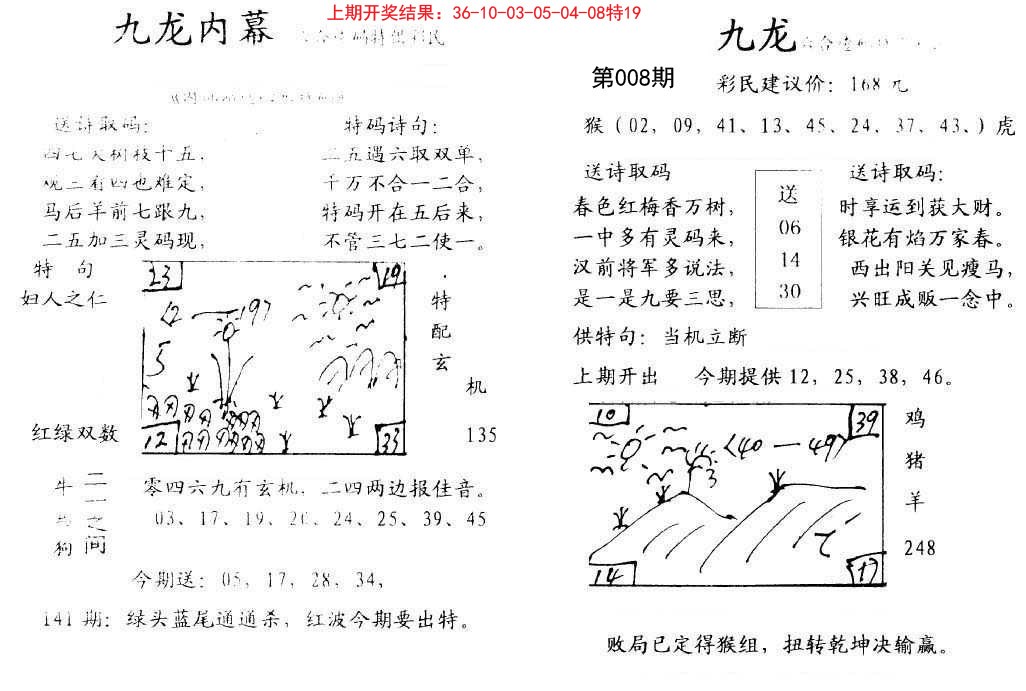 上期开奖结果：36-10-03-05-04-08特19
九龙内幕
送诗取码：
四七天树枝十五，
观三有四也难定，
马后羊前七跟九，
二五加三灵码现，
特码诗句：
二五遇六取双单，
千万不合一二合，
特码开在五后来，
不管三七二使一。
特 句
妇人之仁
红绿双数
23
19
12
33
5
特
配
玄
机
135
牛
狗
二
一
之
间
零四六九有玄机，二四两边报佳音。
03、17、19、20、24、25、39、45
今期送：05，17，28，34，
141 期：绿头蓝尾通通杀，红波今期要出特。
九龙
第008期
彩民建议价：168 元
猴（02，09，41、13、45、24、37、43、）虎
送诗取码
春色红梅香万树，
一中多有灵码来，
汉前将军多说法，
是一是九要三思，
送
06
14
30
送诗取码：
时享运到获大财。
银花有焰万家春。
西出阳关见瘦马，
兴旺成贩一念中。
供特句：当机立断
上期开出 今期提供 12，25，38，46。
10
39
〈40 — 49〉
3
14
17
鸡
猪
羊
248
败局已定得猴组，扭转乾坤决输赢。